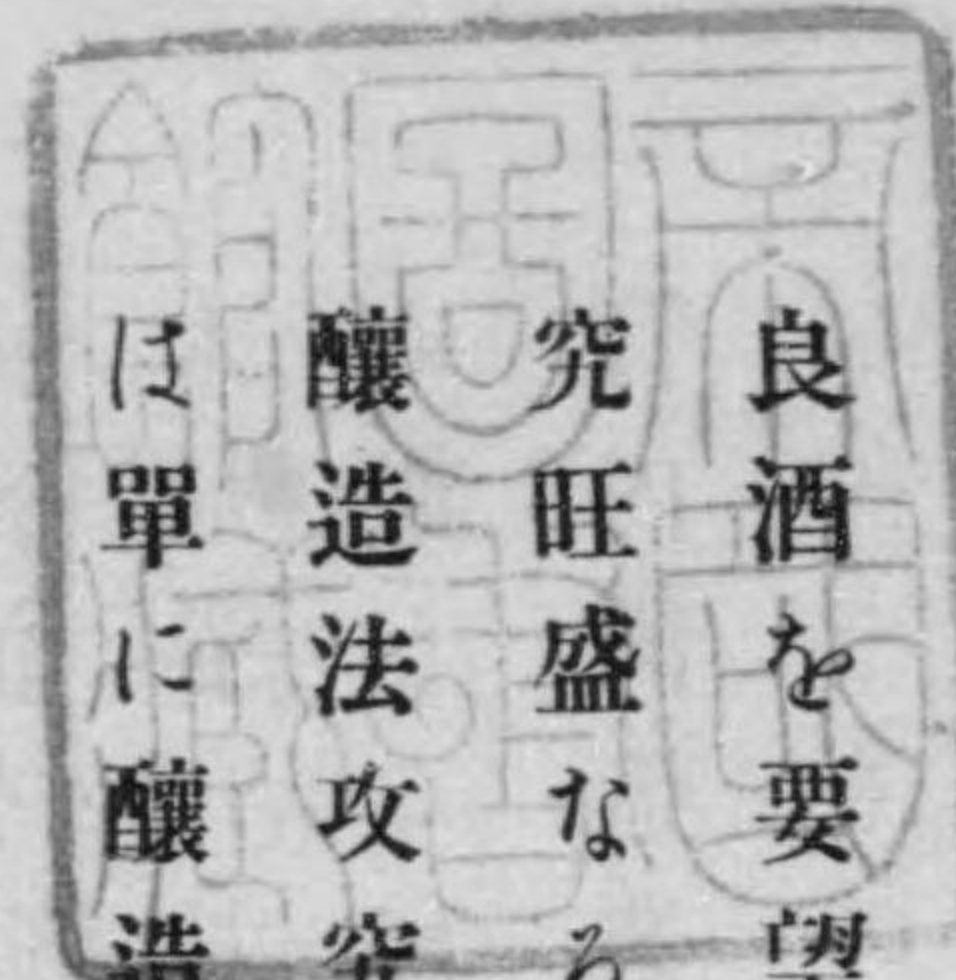 良酒を要望
究旺盛なる
釀造法攻究
は單に釀造